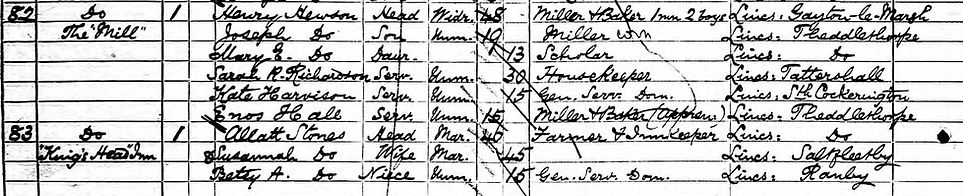 82 Do 1 Henry Hewson Head Widr. 48 Miller & Baker 1 mn 2 boys Lincs: Gayton-le-Marsh
The "Mill" Joseph Do Son Unm. 19 Miller Lincs: Theddlethorpe
Mary E. Do Daur. 13 Scholar Lincs: Do
Sarah R. Richardson Serv. Unm. 30 Housekeeper Lincs: Tattershall
Kate Harvison Serv. Unm. 15 Gen. Serv. Dom. Lincs: Sth Cockerington
Enos Hall Serv. Unm. 15 Miller & Baker (Appren) Lincs: Theddlethorpe
83 Do 1 Allatt Stones Head Mar. 40 Farmer & Innkeeper Lincs: Do
"King's Head" Inn Susannah Do Wife Mar. 45 Lincs: Saltfleetby
Betsy A. Do Niece Unm. 15 Gen. Serv. Dom. Lincs: Ranby